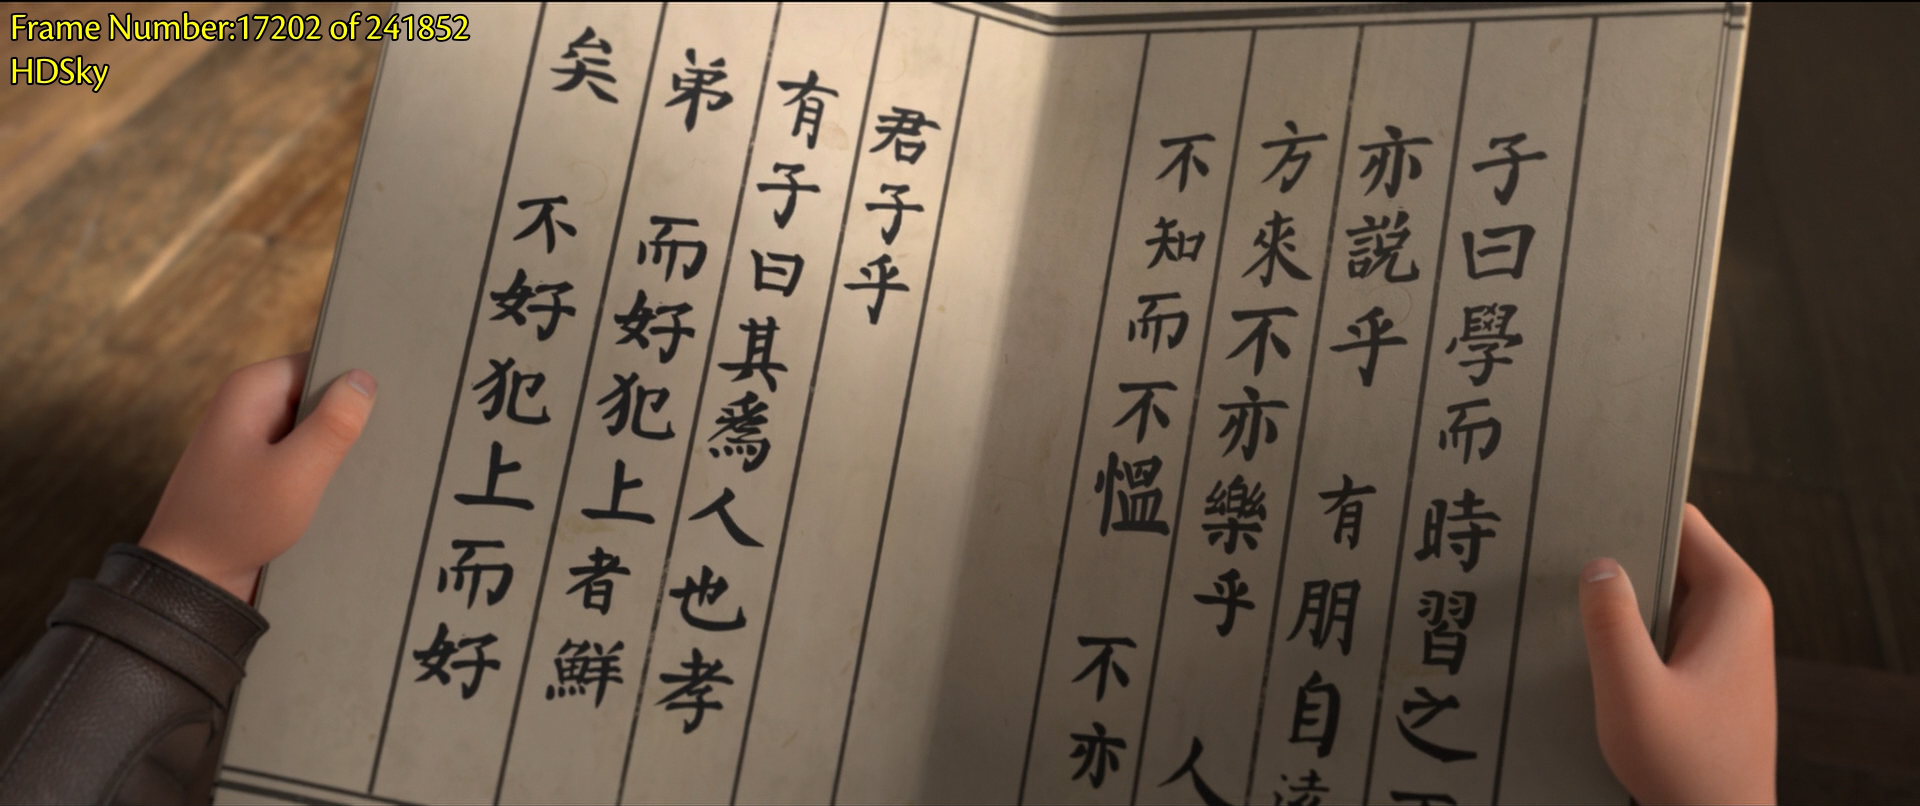 Frame Number:17202 of 241852
HDSky
子曰學而時習之
亦説乎 有朋自遠
方來不亦樂乎 人
不知而不慍 不亦
君子乎
有子曰其爲人也孝
弟 而好犯上者鮮
矣 不好犯上而好